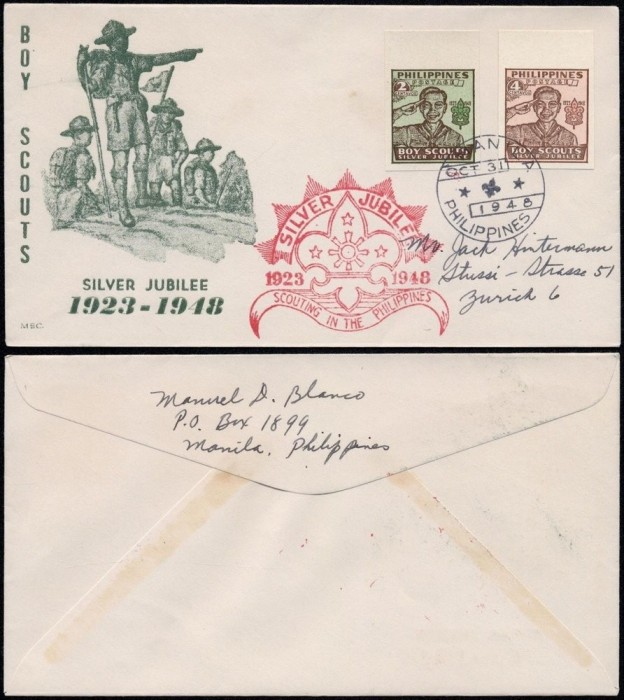 BOY SCOUTS
SILVER JUBILEE
1923-1948
M&C.
SILVER JUBILEE
1923 1948
SCOUTING IN THE PHILIPPINES
PHILIPPINES
POSTAGE
BOY SCOUTS
SILVER JUBILEE
PHILIPPINES
POSTAGE
BOY SCOUTS
SILVER JUBILEE
MANILA
OCT 31
1948
PHILIPPINES
Mr. Jack Hintermann
Stussi-Strasse 51
Zurich 6
Manuel D. Blanco
P.O. Box 1899
Manila, Philippines